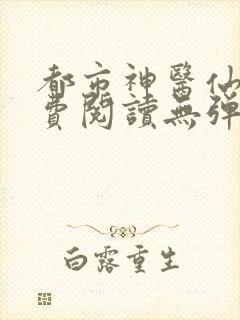 都市神醫仙
費閱讀無彈
白露重生